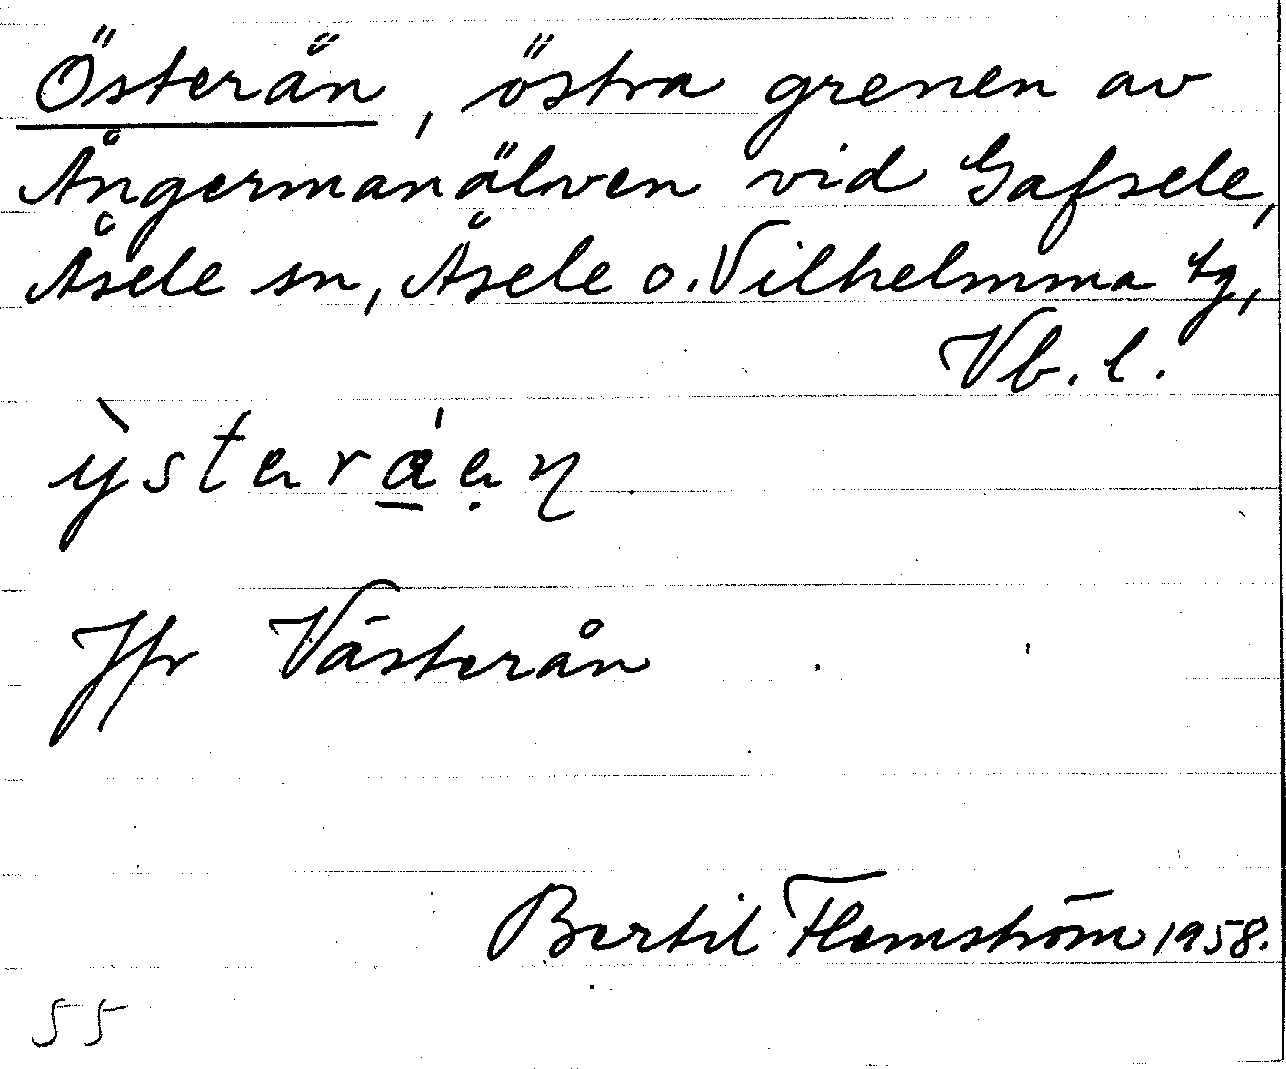 Österån, östra grenen av
Ångermanälven vid Gafsele,
Åsele sn, Åsele o. Vilhelmina tg,
Vb. l.
Jfr Västerån
Bertil Flemström 1958.
55